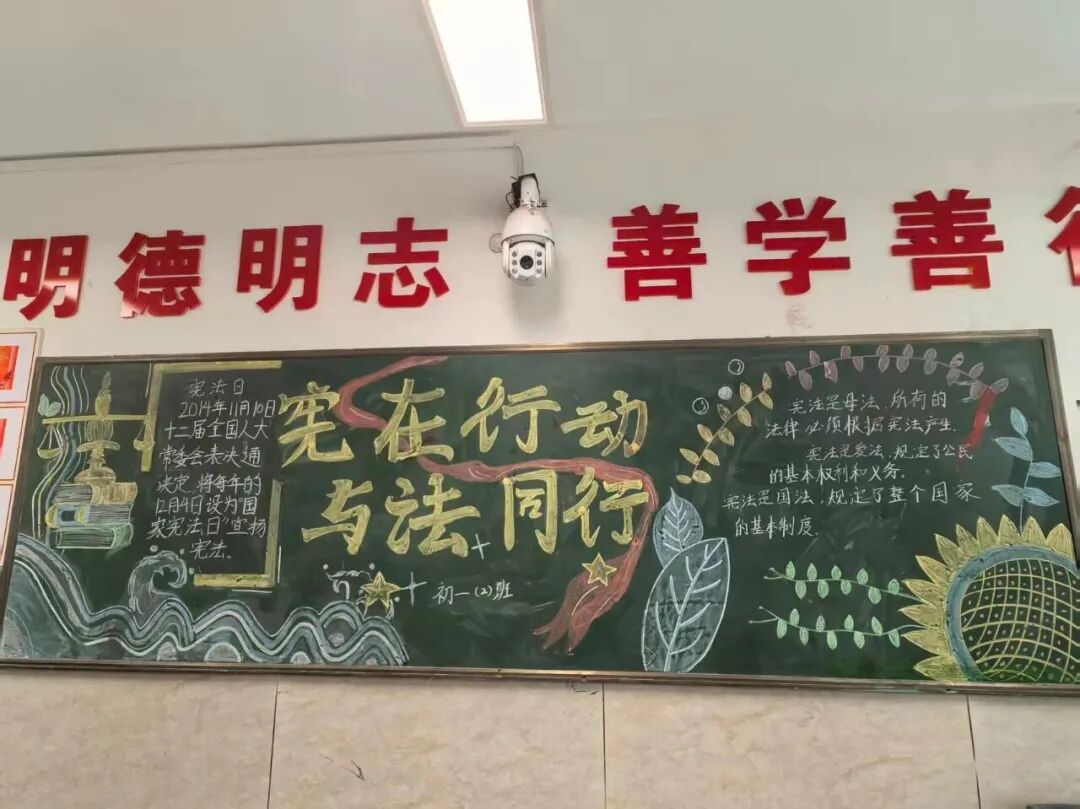 明德明志 善学善
宪法日
2014年11月10日
十二届全国人大
常委会表决通
决定,将每年的
12月4日设为国
家宪法日"宣扬
宪法。
宪在行动
与法同行
初一(2)班
宪法是母法,所有的
法律必须根据宪法产生.
宪法是爱法,规定了公民
的基本权利和义务.
宪法是国法,规定了整个国家
的基本制度.